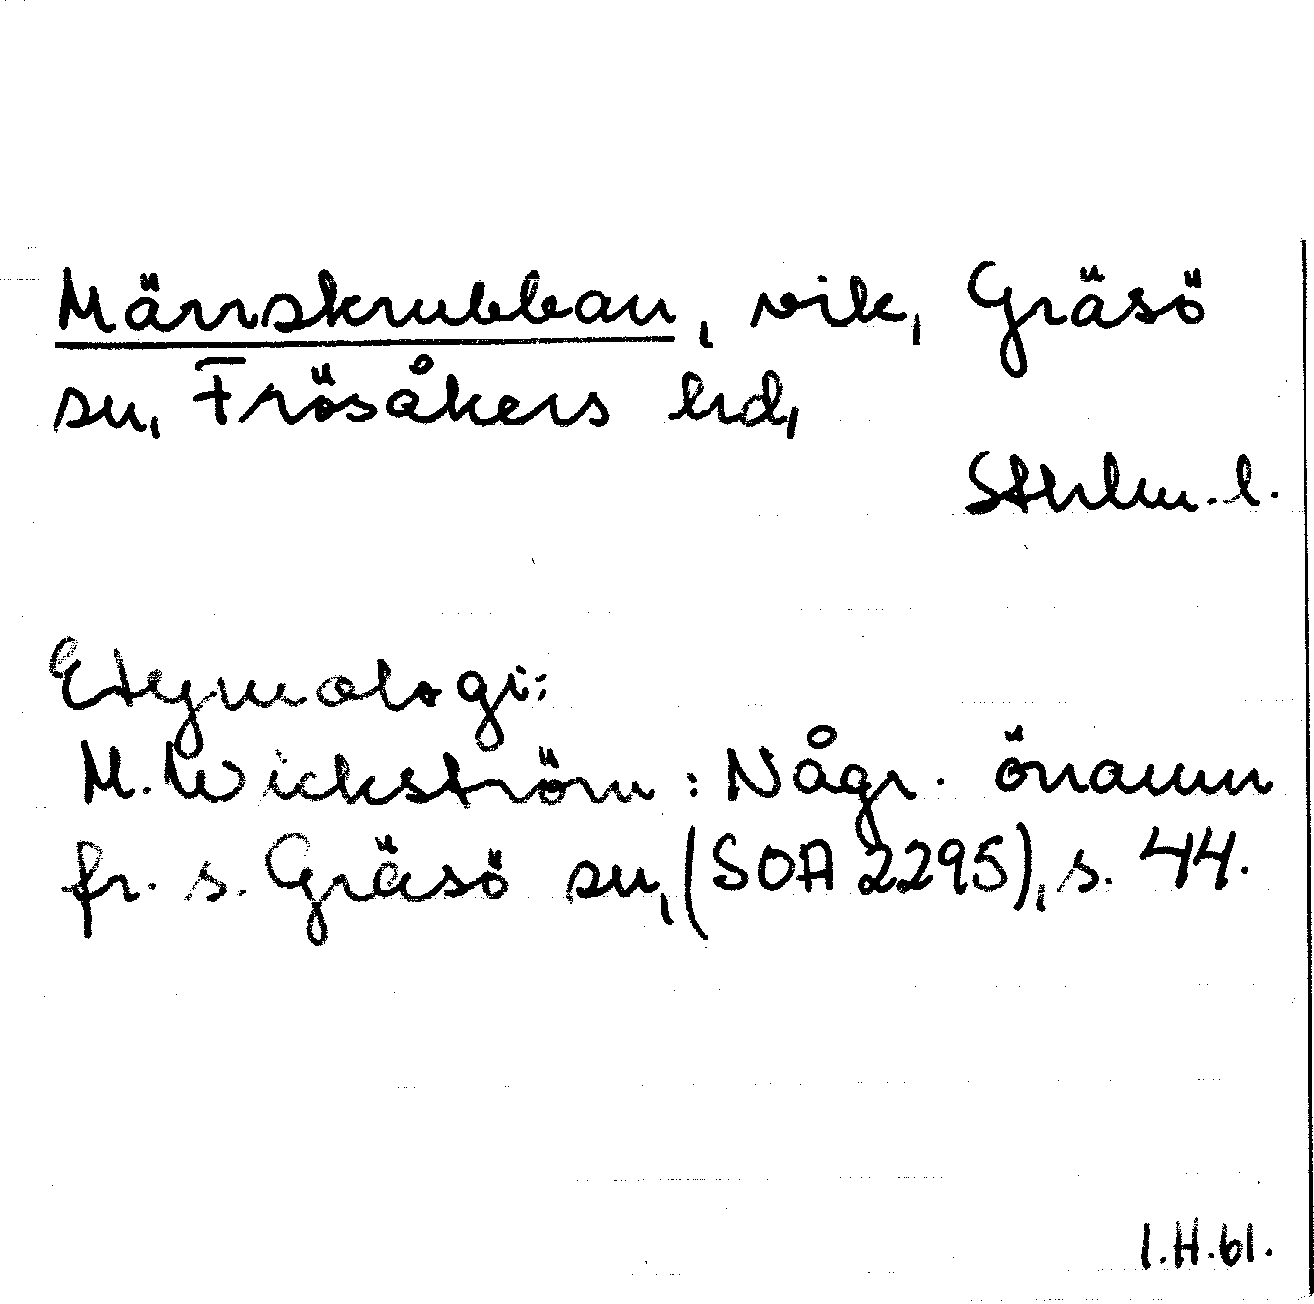 Märrskrubban, vik, Gräsö
sn, Frösåkers hd,
Sthlm. l.
Etymologi:
M. Wickström : Någr. önamn
fr. s. Gräsö sn, (SOA 2295), s. 44.
I.H.61.